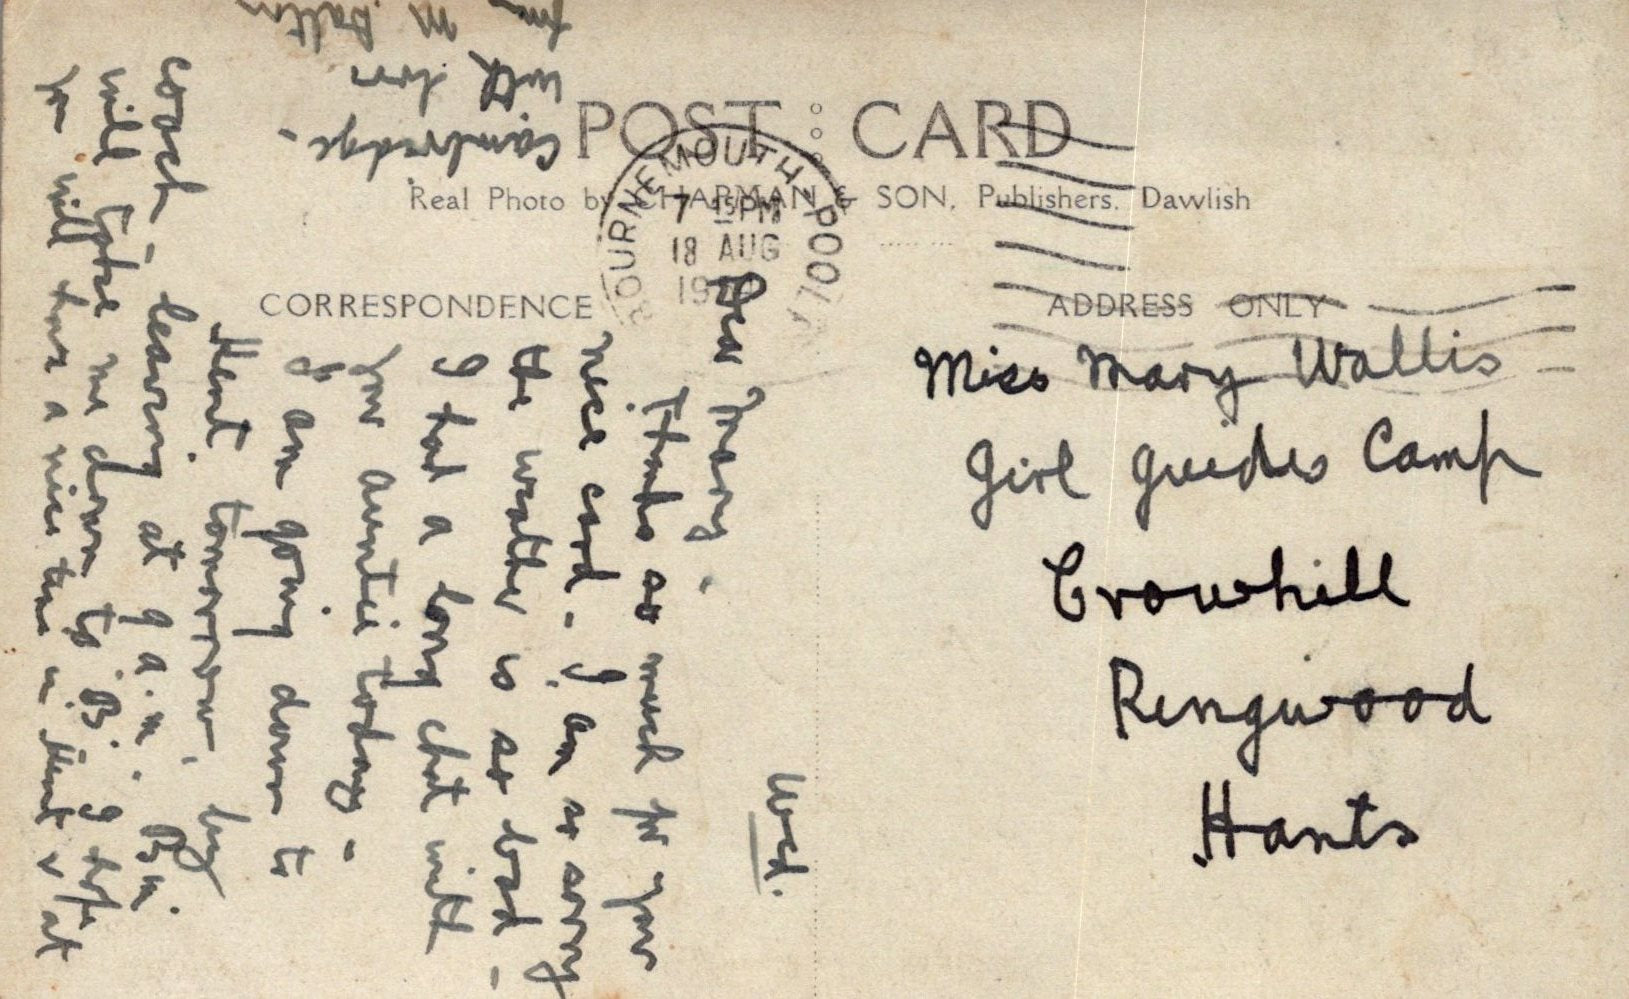 POST CARD
Real Photo by CHAPMAN & SON, Publishers. Dawlish
CORRESPONDENCE
ADDRESS ONLY
BOURNEMOUTH-POOLE
7 15 PM
18 AUG
Wed.
Dear Mary.
Thanks so much for your
nice card. I am so sorry
the weather is so bad -
I had a long chat with
your auntie today -
I am going down to
Hunt. tomorrow, by
coach - leaving at 9 a.m.
will take me down to B. I hope
you will have a nice time in Hunt & at
Cambridge. -
with love
from M.
Miss Mary Wallis
Girl Guides Camp
Crowhill
Ringwood
Hants